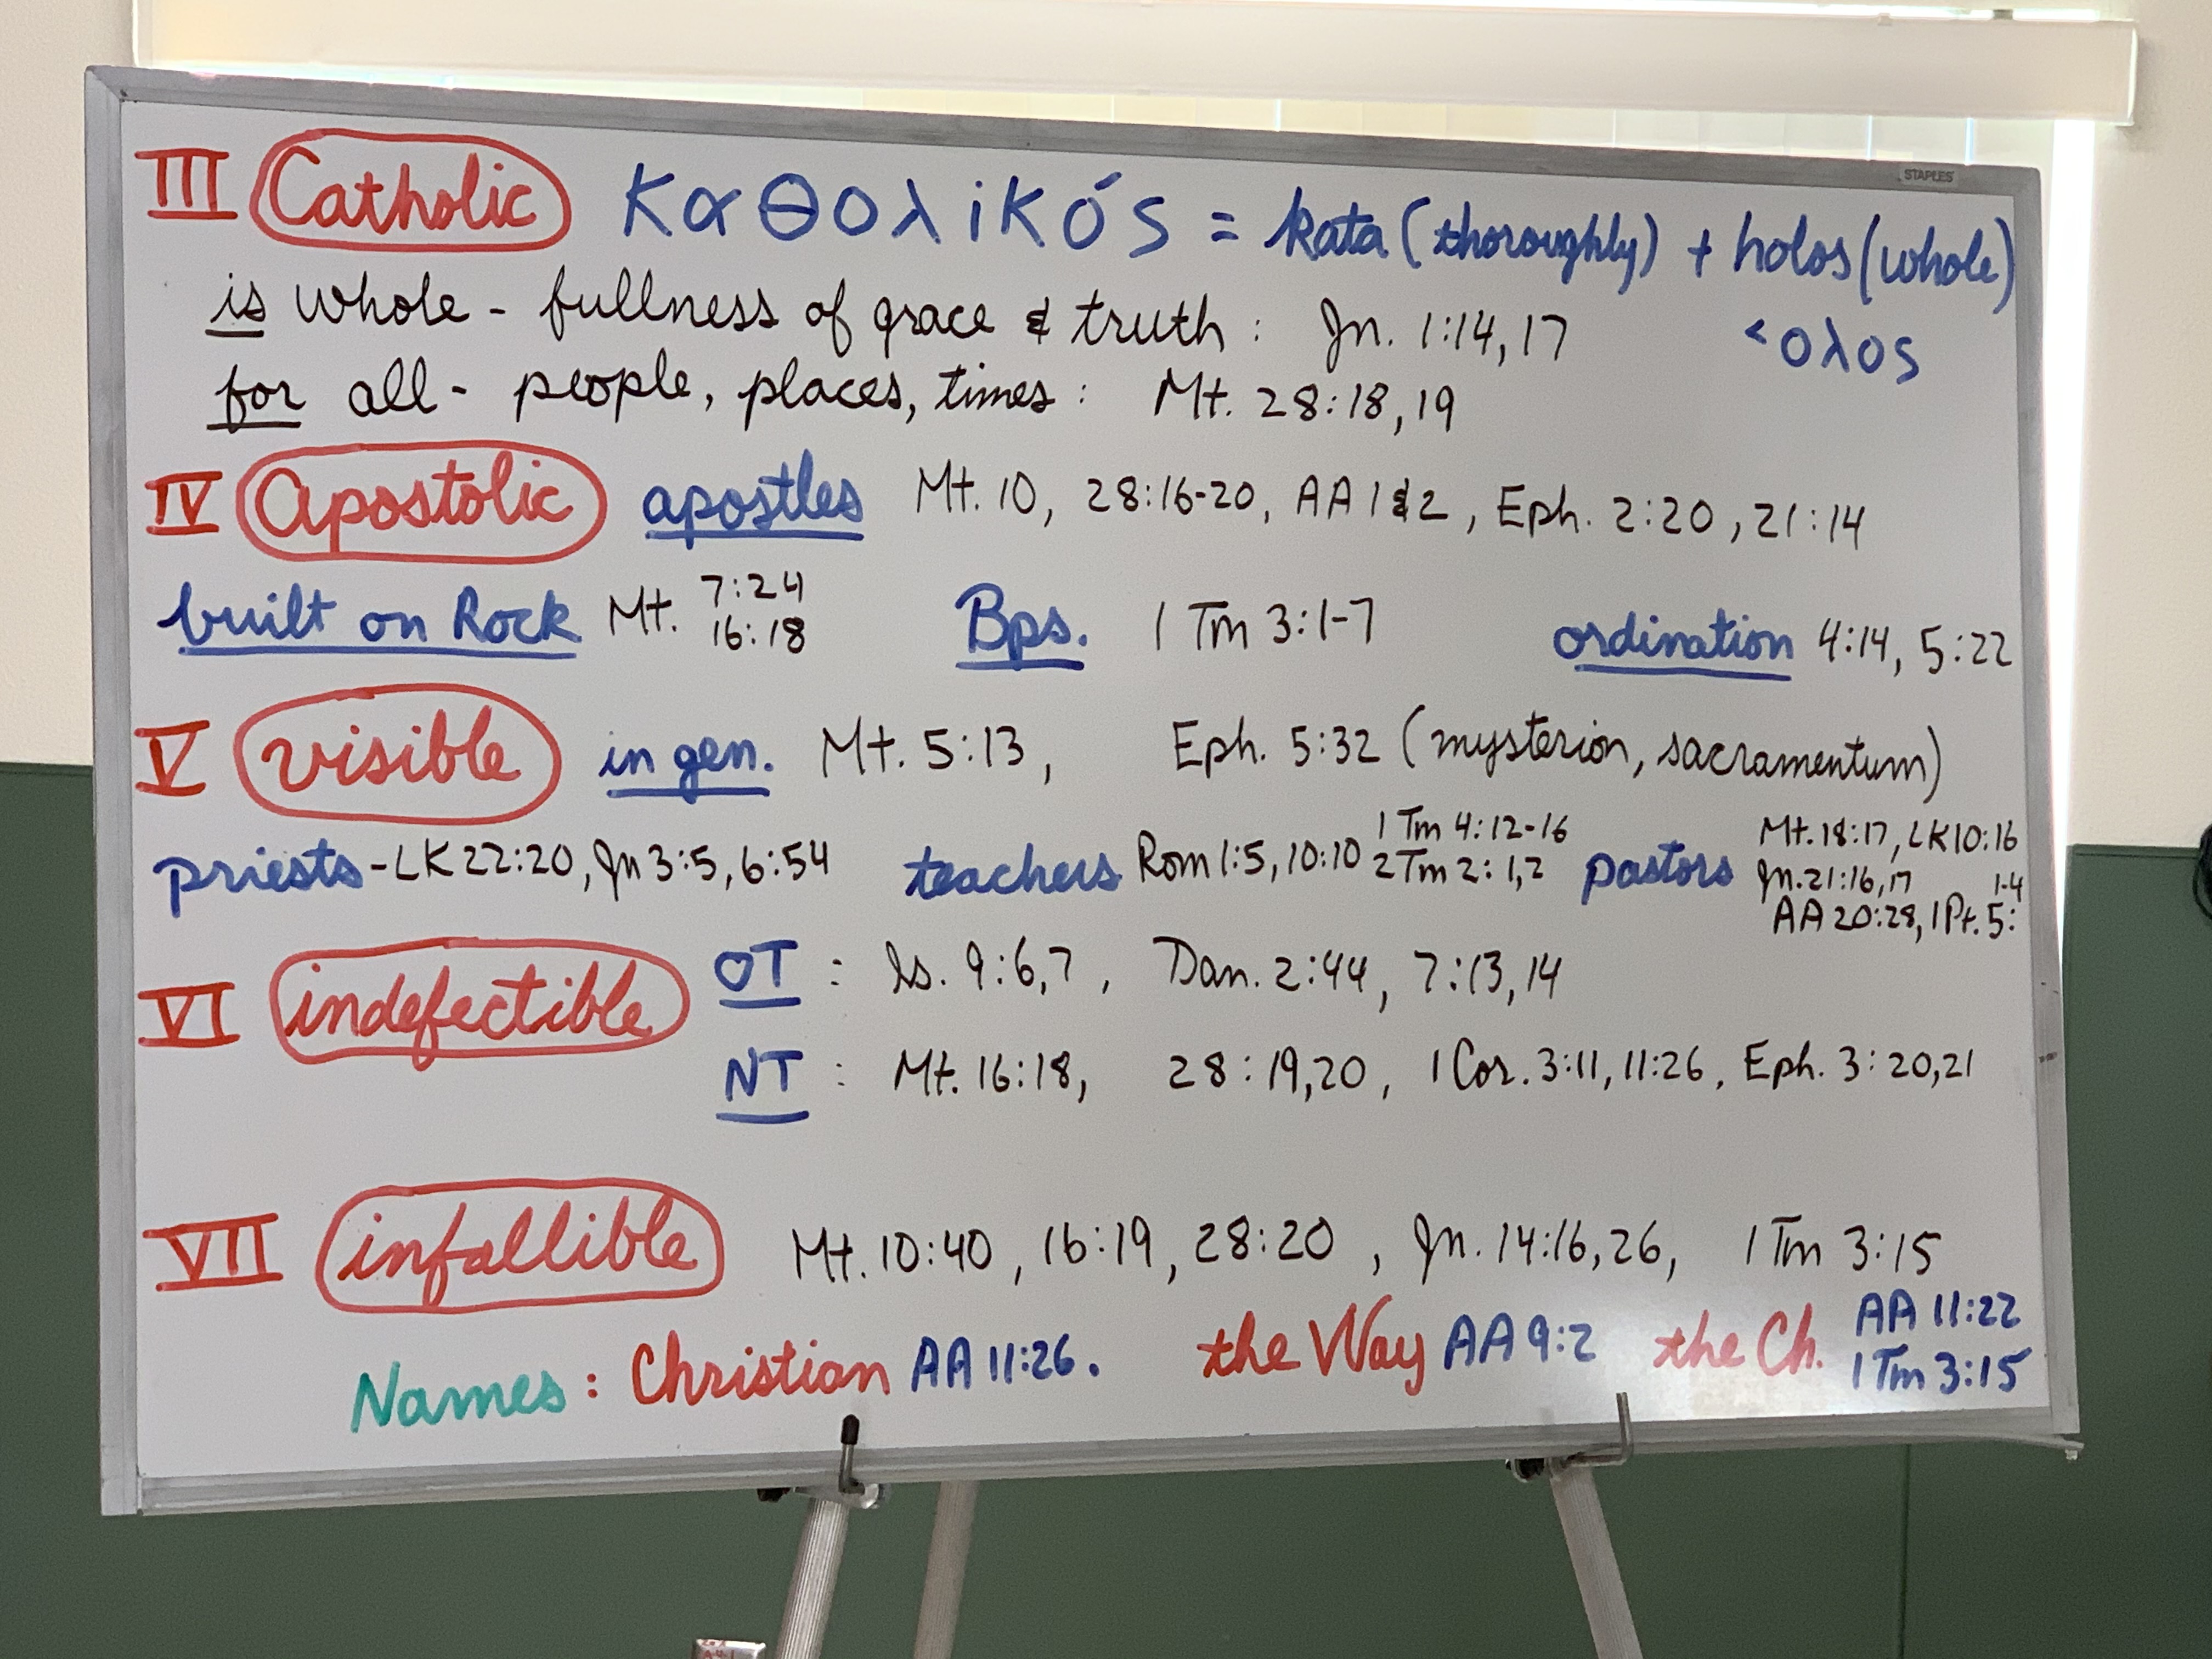 STAPLES
III Catholic Καθολικός = kata (thoroughly) + holos (whole)
is whole - fullness of grace & truth : Jn. 1:14, 17 < ολος
for all - people, places, times : Mt. 28:18, 19
IV Apostolic apostles Mt. 10, 28:16-20, AA 1 & 2, Eph. 2:20, 21:14
built on Rock Mt. 7:24 16:18 Bps. 1 Tm 3:1-7 ordination 4:14, 5:22
V visible in gen. Mt. 5:13, Eph. 5:32 (mysterion, sacramentum)
priests - LK 22:20, Jn 3:5, 6:54 teachers Rom 1:5, 10:10 1 Tm 4:12-16 2 Tm 2:1,2 pastors Mt. 18:17, LK 10:16 Jn. 21:16,17 AA 20:28, 1 Pt. 5:1-4
VI indefectible OT : Is. 9:6,7, Dan. 2:44, 7:13,14
NT : Mt. 16:18, 28:19,20, 1 Cor. 3:11, 11:26, Eph. 3:20,21
VII infallible Mt. 10:40, 16:19, 28:20, Jn. 14:16,26, 1 Tm 3:15
Names : Christian AA 11:26. the Way AA 9:2 the Ch. AA 11:22 1 Tm 3:15